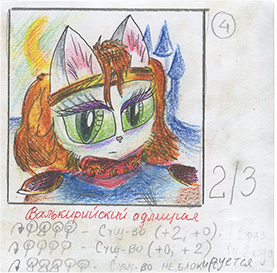 4
2/3
Валькирийский адмирал
- Сущ-во (+2, +0).
- Сущ-во (+0, +2)
- Сущ-во не блокируется